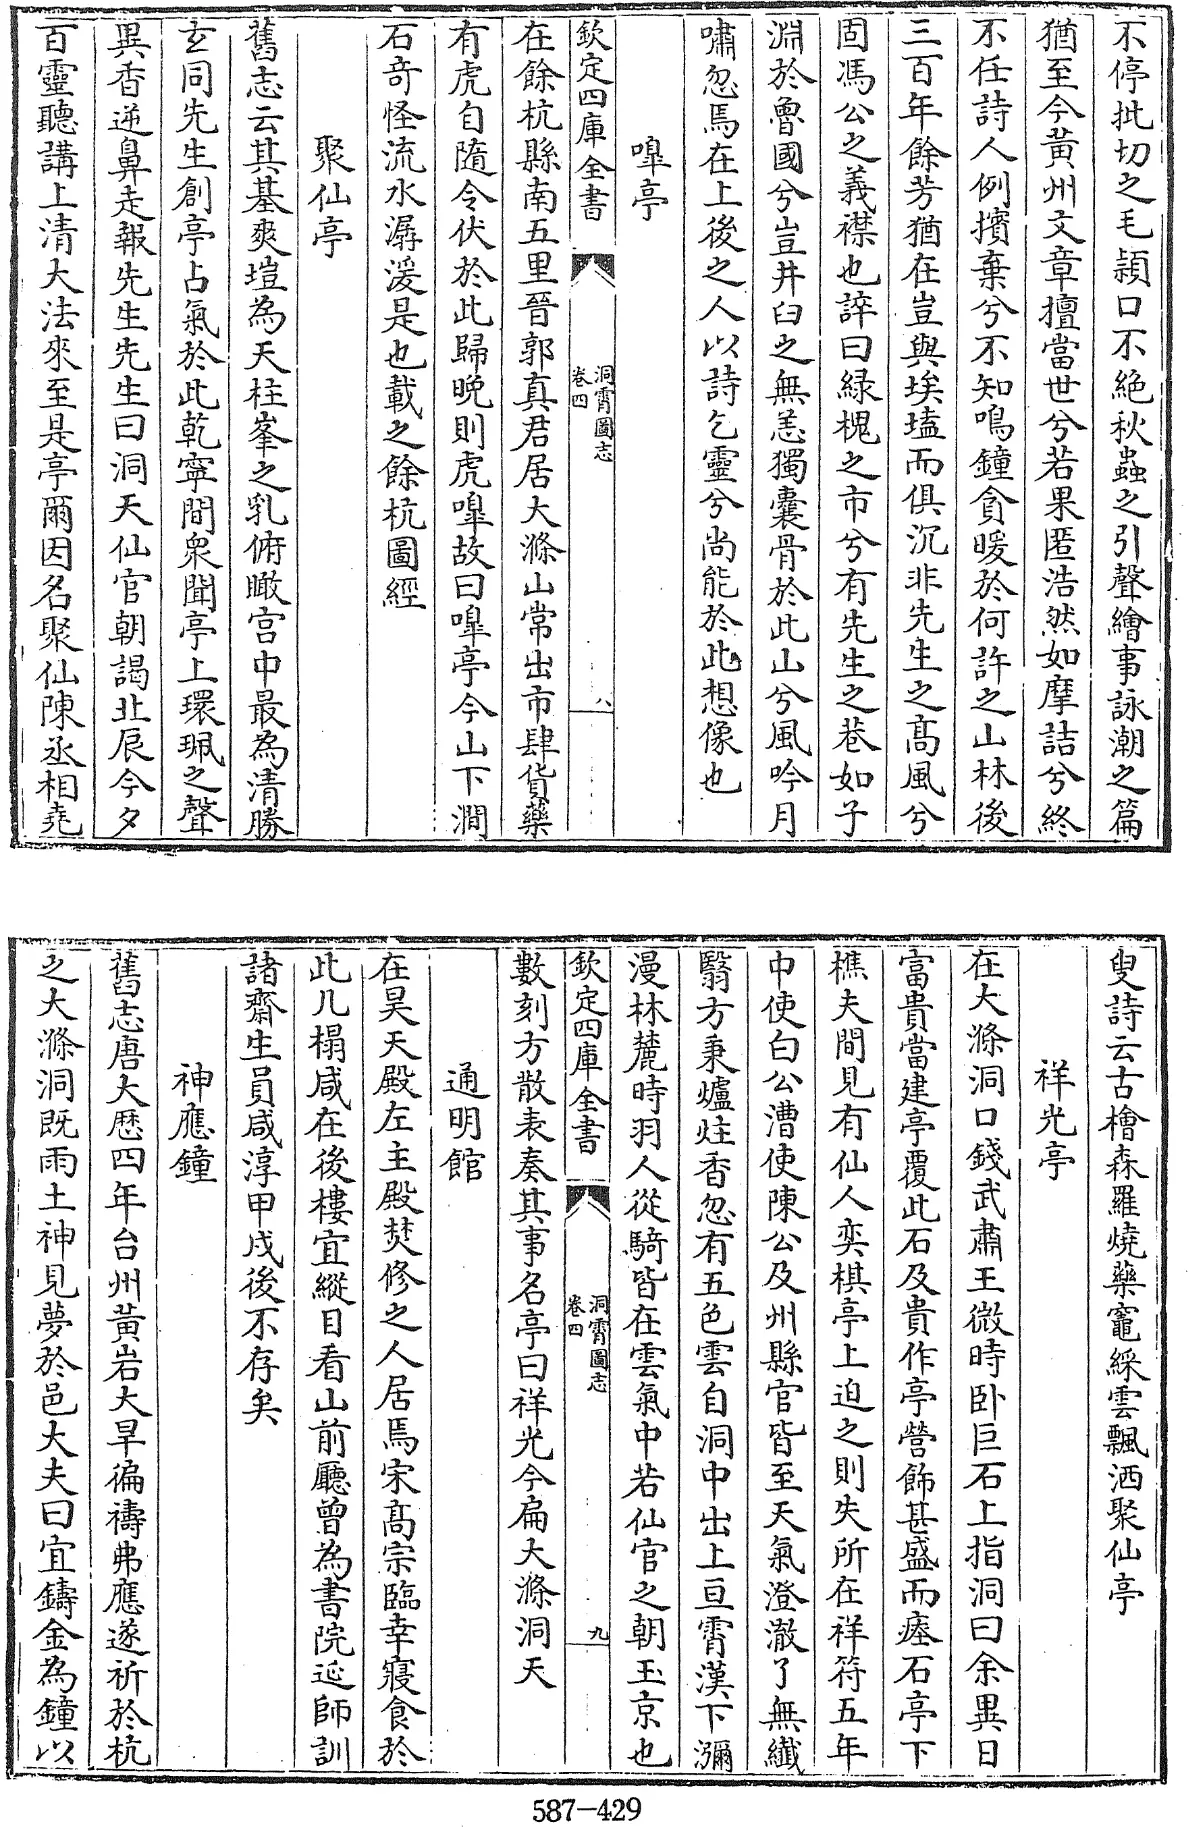 不停批切之毛潁口不絶秋蟲之引聲繪事詠潮之篇
猶至今黄州文章擅當世兮若果匿浩然如摩詰兮終
不任詩人例擯棄兮不知鳴鐘貪暖於何許之山林後
三百年餘芳猶在豈與埃壒而俱沉非先生之髙風兮
固馮公之義襟也誶曰緑槐之市兮有先生之巷如子
淵於魯國兮豈井臼之無恙獨囊骨於此山兮風吟月
嘯忽焉在上後之人以詩乞靈兮尚能於此想像也
嗥亭
欽定四庫全書
洞霄圖志
卷四
八
在餘杭縣南五里晉郭真君居大滌山常出市肆貨藥
有虎自隨令伏於此歸晚則虎嗥故曰嗥亭今山下澗
石竒怪流水潺湲是也載之餘杭圖經
聚仙亭
舊志云其基爽塏為天柱峯之乳俯瞰宫中最為清勝
玄同先生創亭占氣於此乾寧間衆聞亭上環珮之聲
異香逆鼻走報先生先生曰洞天仙官朝謁北辰今夕
百靈聽講上清大法來至是亭爾因名聚仙陳丞相堯
叟詩云古檜森羅燒藥竈綵雲飄洒聚仙亭
祥光亭
在大滌洞口錢武肅王微時卧巨石上指洞曰余異日
富貴當建亭覆此石及貴作亭營飾甚盛而瘞石亭下
樵夫間見有仙人奕棋亭上迫之則失所在祥符五年
中使白公漕使陳公及州縣官皆至天氣澄澈了無纎
翳方秉爐炷香忽有五色雲自洞中出上亘霄漢下瀰
漫林麓時羽人從騎皆在雲氣中若仙官之朝玉京也
欽定四庫全書
洞霄圖志
卷四
九
數刻方散表奏其事名亭曰祥光今扁大滌洞天
通明館
在昊天殿左主殿焚修之人居焉宋髙宗臨幸寢食於
此几榻咸在後樓宜縱目看山前廳曽為書院延師訓
諸齋生員咸淳甲戌後不存矣
神應鐘
舊志唐大厯四年台州黄岩大旱徧禱弗應遂祈於杭
之大滌洞既雨土神見夢於邑大夫曰宜鑄金為鐘以
587-429